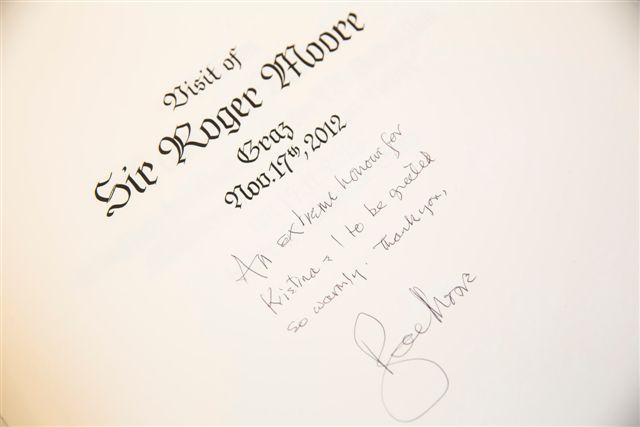 Visit of
Sir Roger Moore
Graz
Nov. 17th, 2012
An extreme honour for
Kristina & I to be greeted
so warmly. Thank you,
Roger Moore